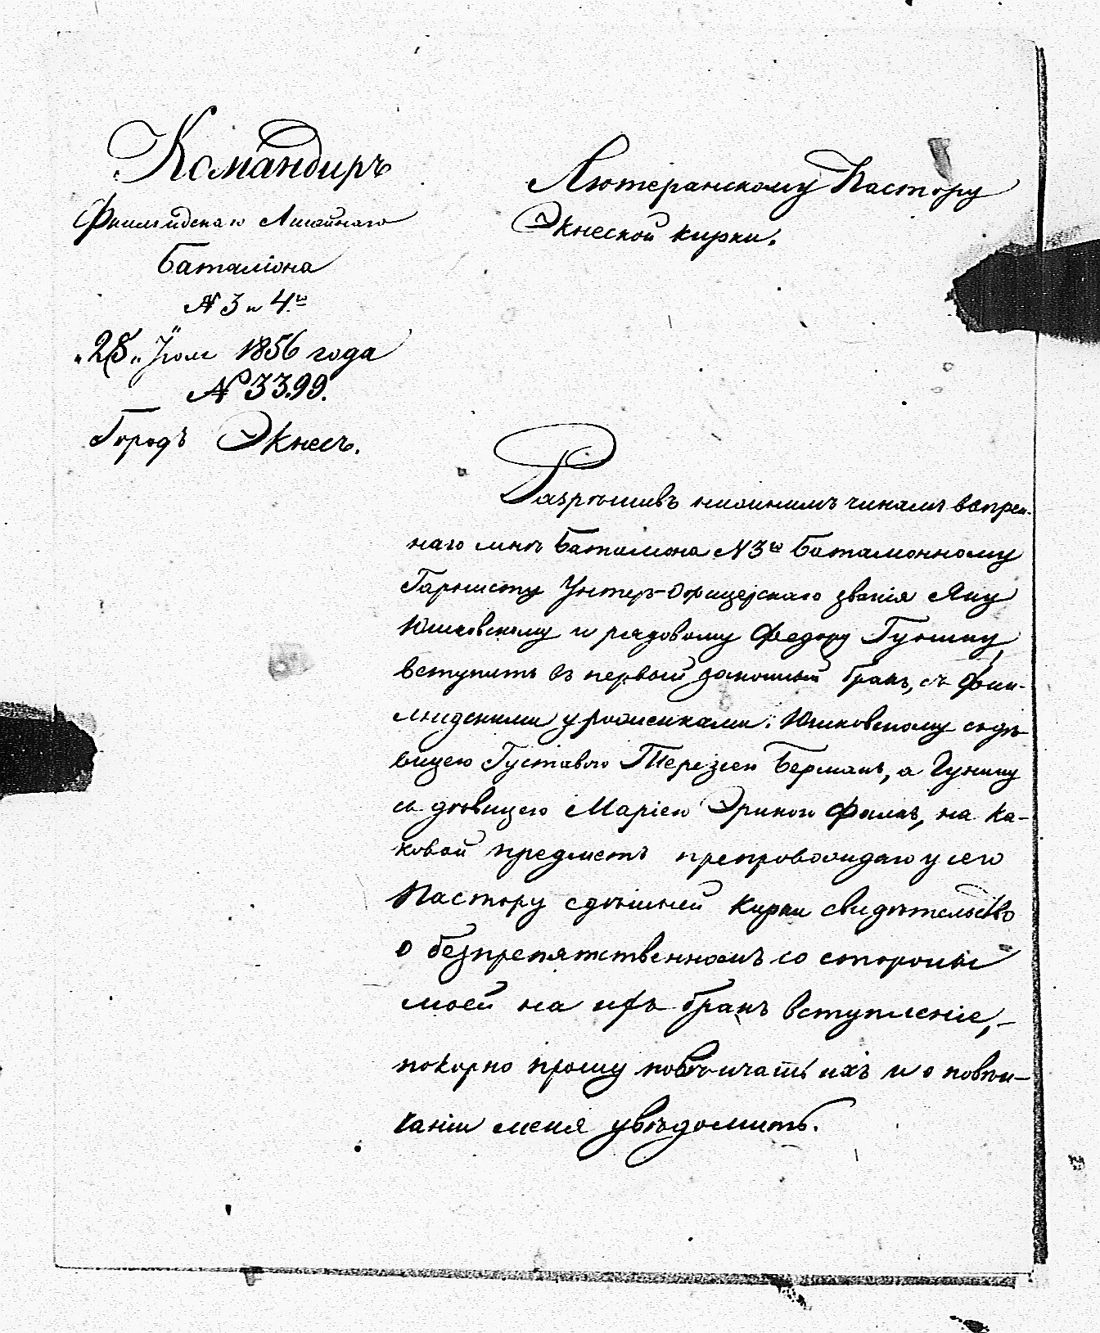 Командиръ
Финляндскаго Линейнаго
Баталіона
№ 3 и 4го
"28" Іюля 1856 года
№ 3399.
Городъ Экнесъ.
Лютеранскому Пастору
Экнеской кирки.
Разрѣшивъ нижнимъ чинамъ ввѣрен-
наго мнѣ Баталіона № 3го Баталіонному
Горнисту Унтеръ-Офицерскаго званія Яну
Юшковскому и рядовому Федору Гунину,
вступить въ первый законный бракъ, съ Фин-
ляндскими уроженками: Юшковскому съ дѣ-
вицею Густавою Терезіею Берманъ, а Гунину
съ дѣвицею Маріею Эрикою Фалкъ, на ка-
ковой предметъ препровождаю у сего
Пастору здѣшней кирки свидѣтельство
о безпрепятственномъ со стороны
моей на ихъ бракъ вступленіе,-
покорно прошу повѣнчать ихъ и о повѣн-
чаніи меня увѣдомить.